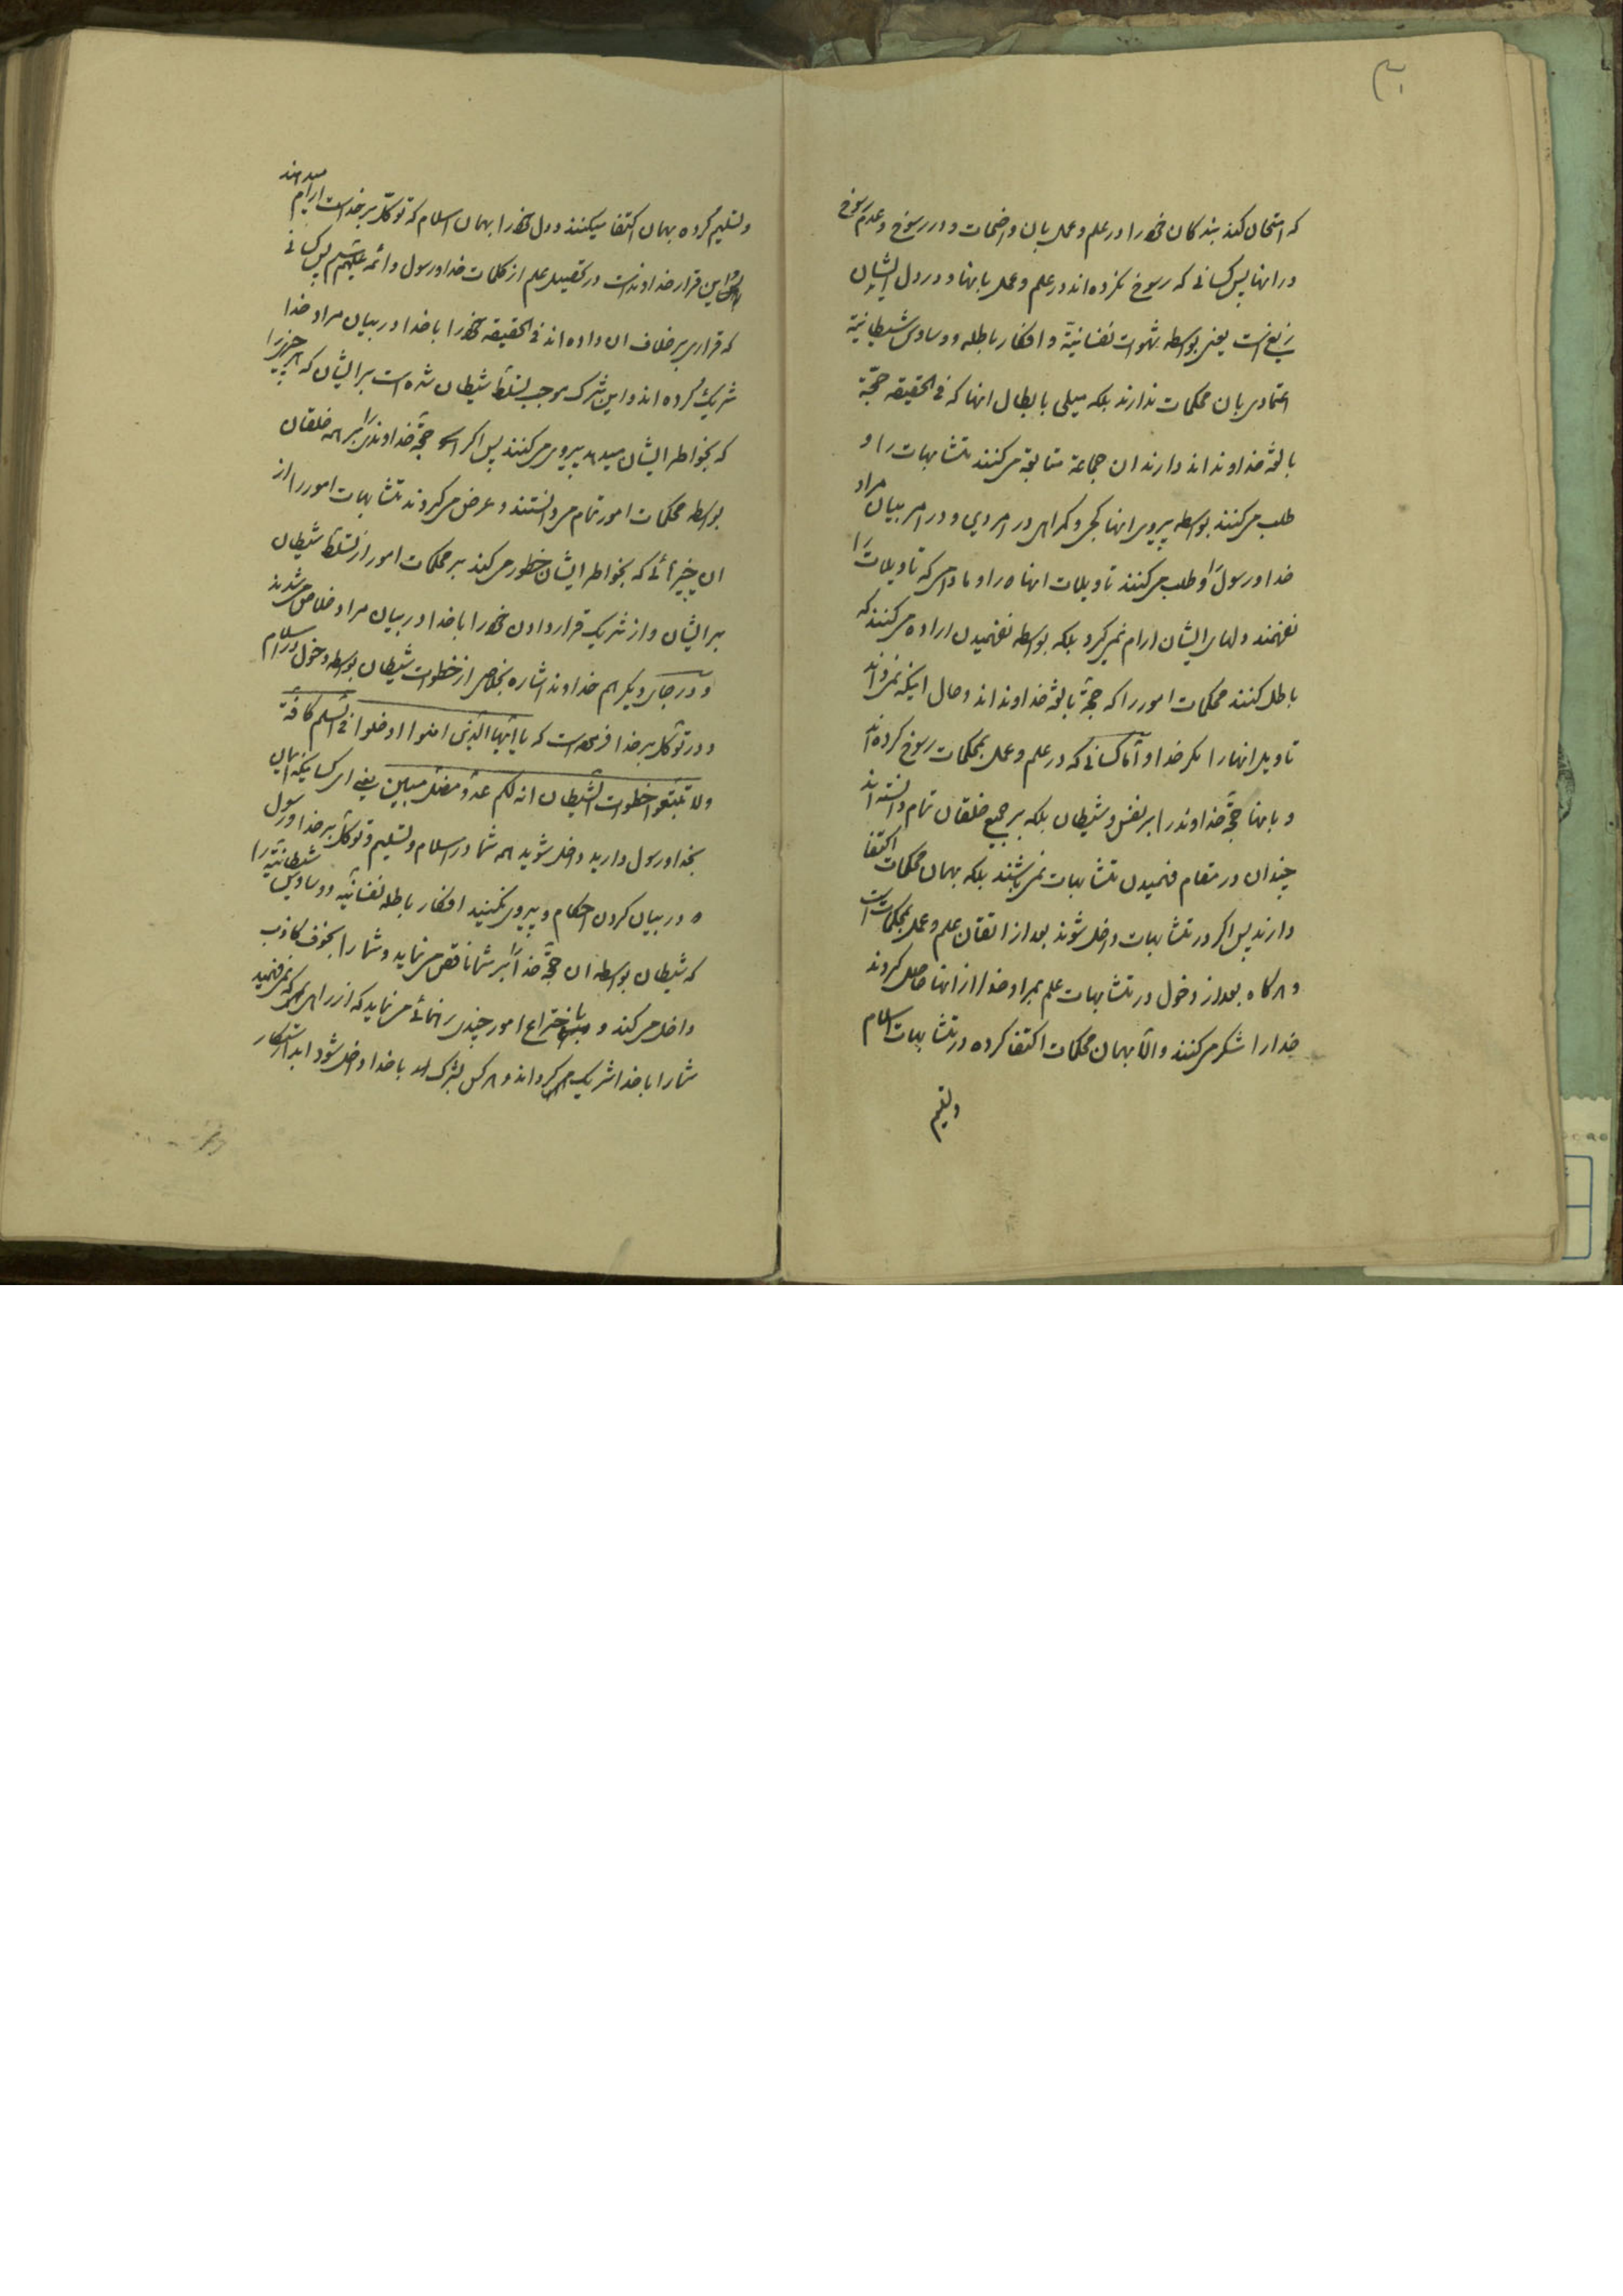 که امتحان کند بندکان خود را در علم و عمل بان واضحات و در رسوخ و عدم رسوخ
در انها پس کسانی که رسوخ نکرده اند در علم و عمل بانها و در دل ایشان
زیغ است یعنی بواسطه شهوات نفسانیّة و افکار باطله و وساوس شیطانیّة
اعتمادی بان محکمات ندارند بلکه میلی بابطال انها که فی الحقیقه حجّة
بالغهٔ خداوند اند دارند ان جماعة متابعة می کنند متشابهات را و
طلب می کنند بواسطه پیروی انها کجی و کمراهی در امر دین و در امر بیان مراد
خدا و رسول را و طلب می کنند تاویلات انها را و مادامی که تاویلات را
نفهمند دلهای ایشان ارام نمی کیرد بلکه بواسطه نفهمیدن اراده می کنند که
باطل کنند محکمات امور را که حجّهٔ بالغهٔ خداوند اند و حال اینکه نمی داند
تاویل انها را مکر خدا و امّا کسانی که در علم و عمل بمحکمات رسوخ کرده اند
و بانها حجّة خداوند را بر نفس و شیطان بلکه بر جمیع خلقان تمام دانسته اند
چندان در مقام فهمیدن متشابهات نمی باشند بلکه بهمان محکمات اکتفا
دارند پس اکر در متشابهات داخل شوند بعد از اتقان علم و عمل بمحکمات است
و هر کاه بعد از دخول در متشابهات علم بمراد خدا از انها حاصل کردند
خدا را شکر می کنند و الّا بهمان محکمات اکتفا کرده در متشابهات اسلام
و تسلیم
و تسلیم کرده بهمان اکتفا میکنند و دل خود را بهمان اسلام که توکّل بر خداست ارام میدهند
و این قرار خداوند است در تحصیل علم از کلمات خدا و رسول و ائمه علیهم السلام پس کسانی
که قراری بر خلاف ان داده اند فی الحقیقه خود را با خدا در بیان مراد خدا
شریک کرده اند و این شرک موجب تسلّط شیطان شده است بر ایشان که هر چیزی را
که بخواطر ایشان میدهد پیروی می کنند پس اکر حجّة خداوند را بر همه خلقان
بواسطه محکمات امور تمام می دانستند و عرض می کردند متشابهات امور را از
ان چیزهائی که بخواطر ایشان خطور می کند بر محکمات امور از تسلّط شیطان
بر ایشان و از شریک قرار دادن خود را با خدا در بیان مراد خلاص می شدند
و در جای دیکر هم خداوند اشاره بخلاصی از خطوات شیطان بواسطه دخول در اسلام
و در توکّل بر خدا فرموده است که یا ایّها الّذین امنوا ادخلوا فی السّلم کافّة
ولا تتّبعوا خطوات الشّیطان انه لکم عدوّ مضلّ مبین یعنی ای کسانیکه ایمان
بخدا و رسول دارید داخل شوید همه شما در اسلام و تسلیم و توکّل بر خدا و رسول
در بیان کردن احکام و پیروی نکنید افکار باطله نفسانیّه و وساوس شیطانیّه را
که شیطان بواسطه ان حجّة خدا را بر شما ناقص می نماید و شما را بخوف کاذب
داخل می کند و باختراع امور چندی رهنمائی می نماید که از راهی که نمی فهمید
شما را با خدا شریک می کرداند و هر کس بشرک با خدا داخل شود ابدا رستکار